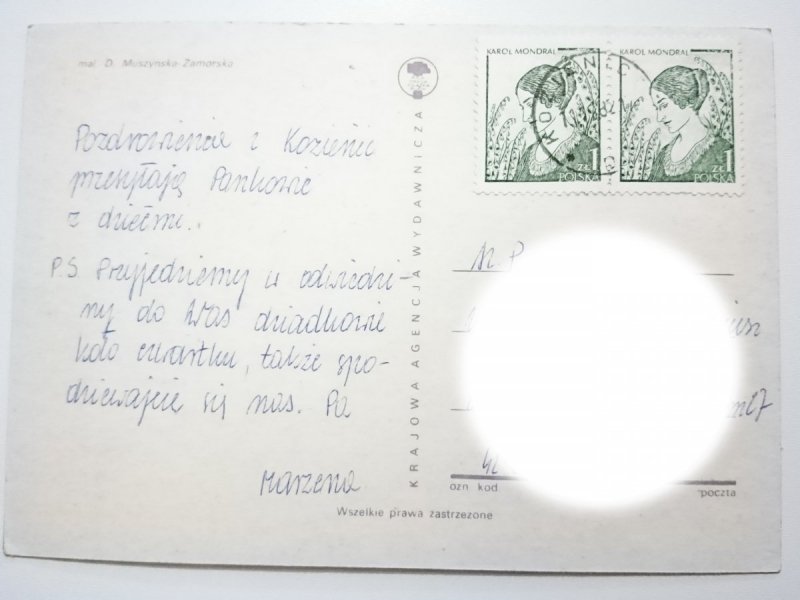 mal. D. Muszyńska-Zamorska
Pozdrowienia z Kozienic
przesyłają Pankowie
z dziećmi.
P.S. Przyjedziemy w odwiedzi-
ny do Was dziadkowie
koło czwartku, także spo-
dziewajcie się nas. Pa
Marzena
KRAJOWA AGENCJA WYDAWNICZA
Wszelkie prawa zastrzeżone
KAROL MONDRAL
1 ZŁ
POLSKA
KAROL MONDRAL
1 ZŁ
POLSKA
KOZIENIC
ozn kod
poczta